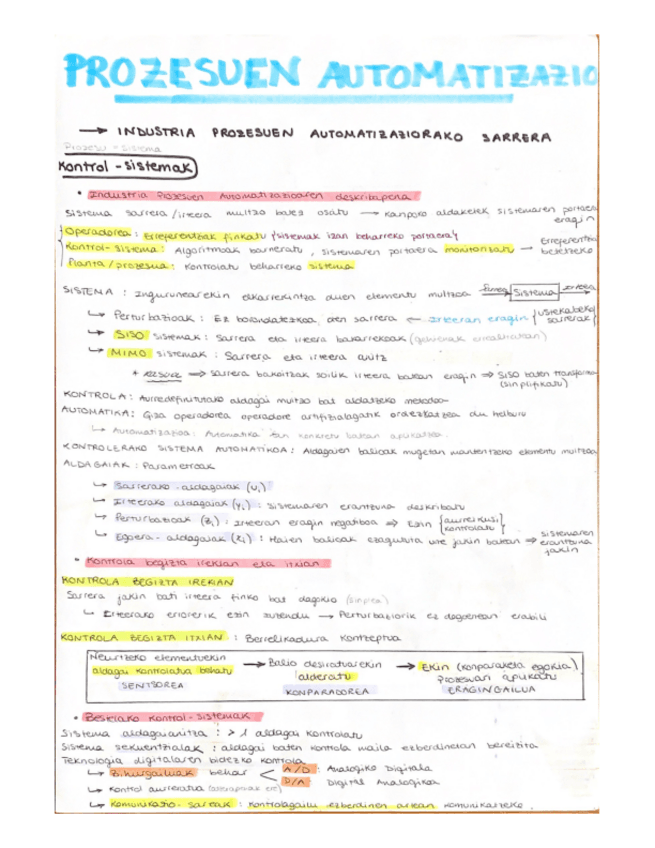 PROZESUEN AUTOMATIZAZIO
→ INDUSTRIA PROZESUEN AUTOMATIZAZIORAKO SARRERA
Prozesu - sistema
Kontrol - sistemak
• Industria Prozesuen Automatizazioaren deskribapena
Sistema sarrera / irteera multzo batez osatu → Kanpoko aldaketek sistemaren portaera
eragin
Operadorea : Erreferentziak finkatu {sistemak izan beharreko portaera}
Kontrol-sistema : Algoritmoak barneratu, sistemaren portaera monitorizatu → Erreferentzia
betetzeko
Planta / prozesua : Kontrolatu beharreko sistema
SISTEMA : Ingurunearekin elkarrekintza duen elementu multzoa sarrera Sistema irteera
↳ Perturbazioak : Ez den sarrera ← Irteeran eragin {ustekabeko
sarrerak}
↳ SISO sistemak : Sarrera eta irteera bakarrekoak (gehienak errealitatean)
↳ MIMO sistemak : Sarrera eta irteera anitz
* → Sarrera bakoitzak soilik irteera batean eragin ⇒ SISO baten
(sinplifikatu)
KONTROLA : Aurredefinitutako aldagai multzo bat aldatzeko metodoa
AUTOMATIKA : Giza operadorea operadore artifizialagatik ordezkatzea du helburu
↳ Automatizazioa : Automatika konkretu batean aplikatzea.
KONTROLERAKO SISTEMA AUTOMATIKOA : Aldagaien balioak mugetan mantentzeko elementu multzoa
ALDAGAIAK : Parametroak
↳ Sarrerako aldagaiak (ui)
↳ Irteerako aldagaiak (yi) : Sistemaren erantzuna deskribatu
↳ Perturbazioak (zi) : Irteeran eragin negatiboa ⇒ Ezin {aurreikusi
kontrolatu}
↳ Egoera - aldagaiak (xi) : Haien balioak ezagututa une jakin batean ⇒ sistemaren
erantzuna
jakin
• Kontrola begizta irekian eta itxian
KONTROLA BEGIZTA IREKIAN
Sarrera jakin bati irteera finko bat dagokio (sinplea)
↳ Irteerako errorerik ezin zuzendu → Perturbaziorik ez dagoenean erabili
KONTROLA BEGIZTA ITXIAN : Berrelikadura kontzeptua
Neurtzeko elementuekin → Balio desiratuarekin → Ekin (konparaketa egokia)
aldagai kontrolatua behatu alderatu Prozesuari aplikatu
SENTSOREA KONPARADOREA ERAGINGAILUA
• Bestelako kontrol-sistemak
Sistema aldagaianitza : > 1 aldagai kontrolatu
Sistema sekuentzialak : aldagai baten kontrola maila ezberdinetan bereizita
Teknologia digitalaren bidezko kontrola
↳ Bihurgailuak behar < A/D : Analogiko Digitala
D/A : Digital Analogikoa
↳ Kontrol aurreratua
↳ Komunikazio - sareak : Kontrolagailu ezberdinen artean komunikatzeko.